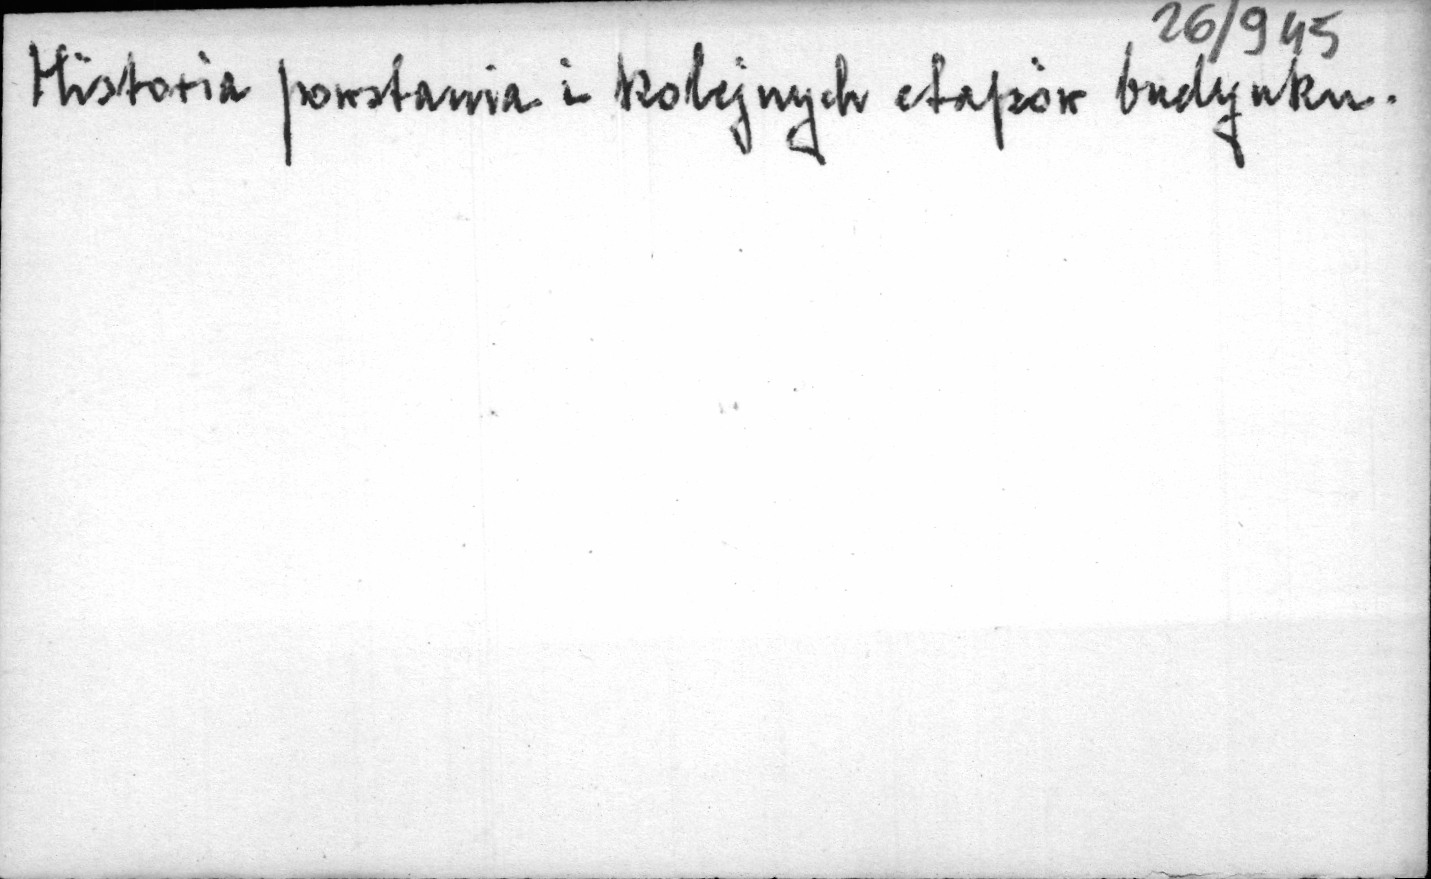 26/945
Historia powstania i kolejnych etapów budynku.